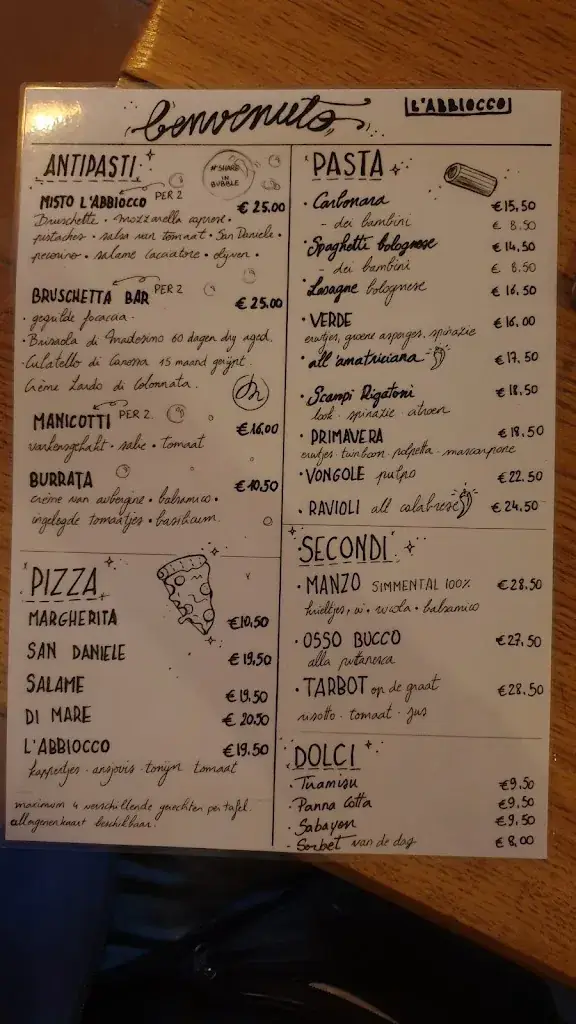 benvenuto
L'ABBIOCCO
ANTIPASTI
#SHARE IN BUBBLE
MISTO L'ABBIOCCO PER 2 € 25.00
Bruschetti • mozzarella caprese •
pistaches • salsa van tomaat • San Daniele •
pecorino • salame cacciatore • olijven •
BRUSCHETTA BAR PER 2 € 25.00
• gegrilde focaccia •
• Brisaola di Madesimo 60 dagen dry aged.
• Culatello di Canossa 15 maand gerijpt.
Crème Lardo di Colonnata.
MANICOTTI PER 2. €16.00
varkensgehakt • salie • tomaat
BURRATA €10,50
crème van aubergine • balsamico •
ingelegde tomaatjes • basilicum.
PIZZA
MARGHERITA €10,50
SAN DANIELE €19,50
SALAME €19.50
DI MARE € 20.50
L'ABBIOCCO €19.50
kappertjes • ansjovis • tonijn tomaat
maximum 4 verschillende gerechten per tafel.
allergenenkaart beschikbaar.
PASTA
• Carbonara €15,50
- dei bambini € 8,50
• Spaghetti bolognese €14,50
- dei bambini € 8.50
• Lasagne bolognese €16,50
• VERDE €16,00
erwtjes, groene asperges, spinazie
• all'amatriciana €17.50
• Scampi Rigatoni €18,50
look • spinazie • citroen
• PRIMAVERA €18,50
erwtjes tuinboon • polpetta • mascarpone
• VONGOLE pulpo €22.50
• RAVIOLI all calabrese €24,50
SECONDI
• MANZO SIMMENTAL 100% €28.50
frietjes, ui • rucola • balsamico
• OSSO BUCCO €27,50
alla putanesca
• TARBOT op de graat €28.50
risotto • tomaat • jus
DOLCI
• Tiramisu €9,50
• Panna Cotta €9,50
• Sabayon €9,50
- Sorbet van de dag € 8,00